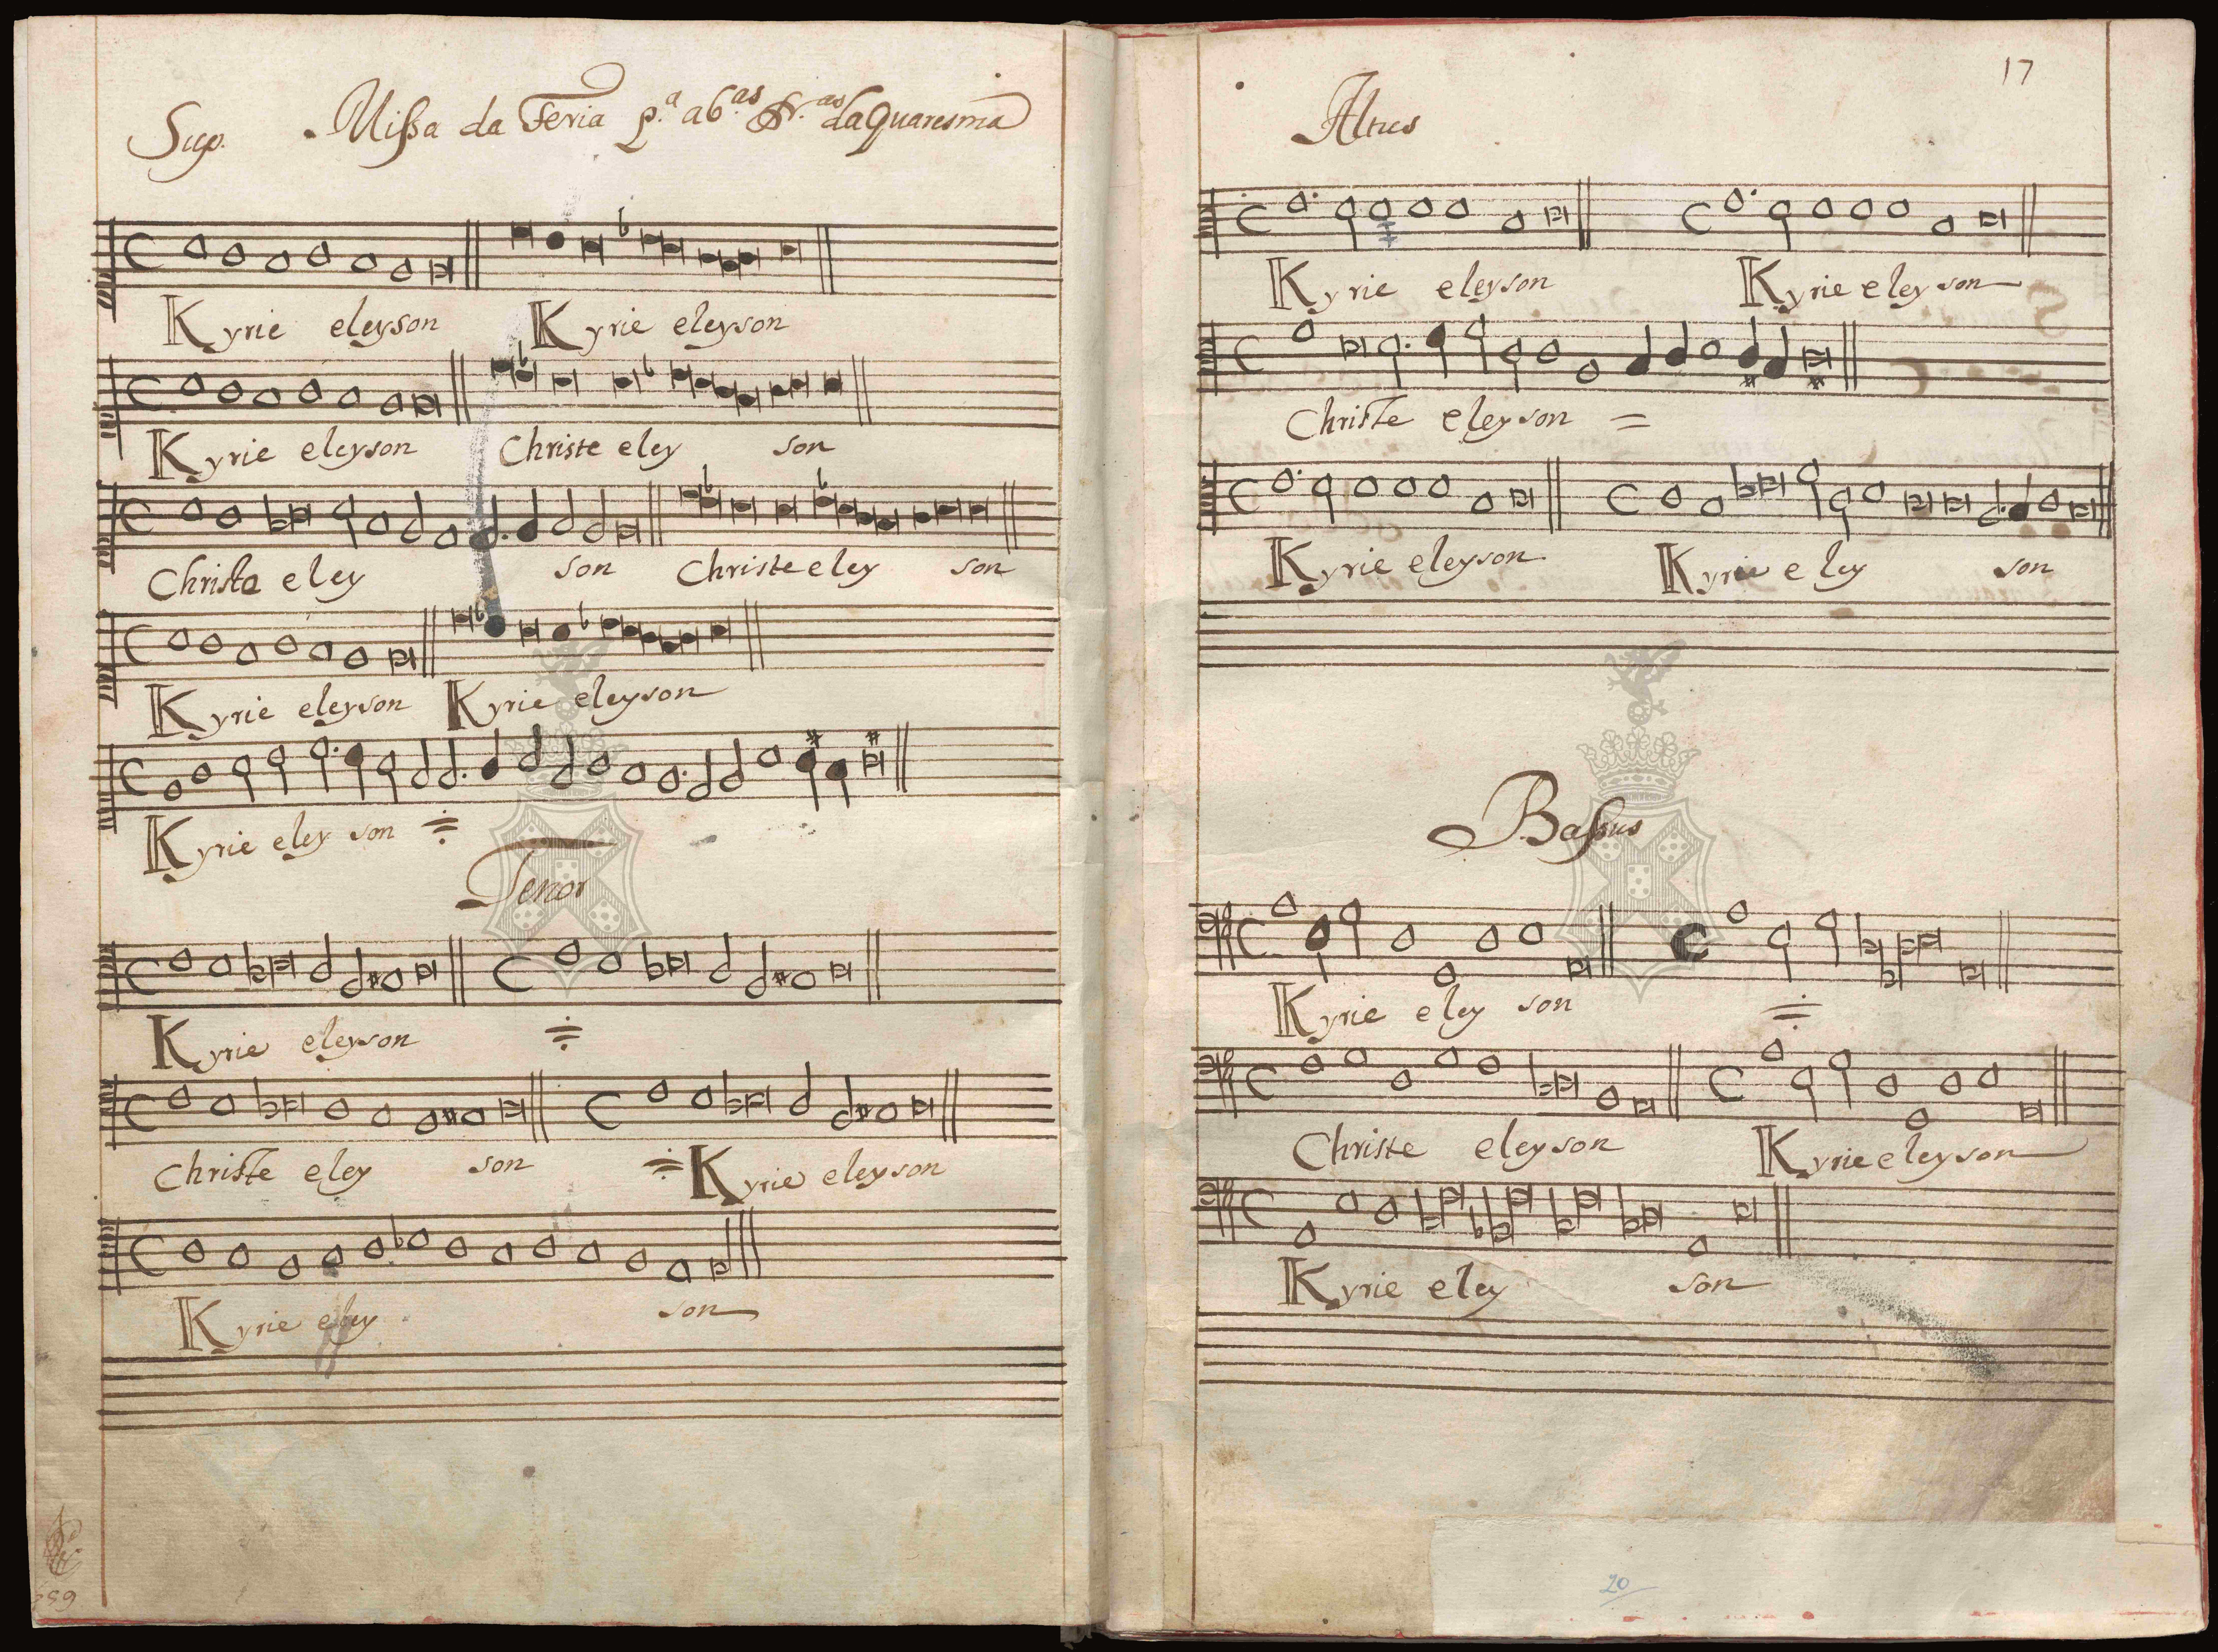 Sup. Missa da Feria P.ª ab.as Fr.as da Quaresma
Kyrie eleyson Kyrie eleyson
Kyrie eleyson Christe eley son
Christe eley son Christe eley son
Kyrie eleyson Kyrie eleyson
Kyrie eley son
Tenor
Kyrie eleyson
Christe eley son Kyrie eleyson
Kyrie eley son
17
Altus
Kyrie eleyson Kyrie eleyson
Christe eleyson
Kyrie eleyson Kyrie eley son
Bassus
Kyrie eley son
Christe eleyson Kyrie eleyson
Kyrie eley son
20